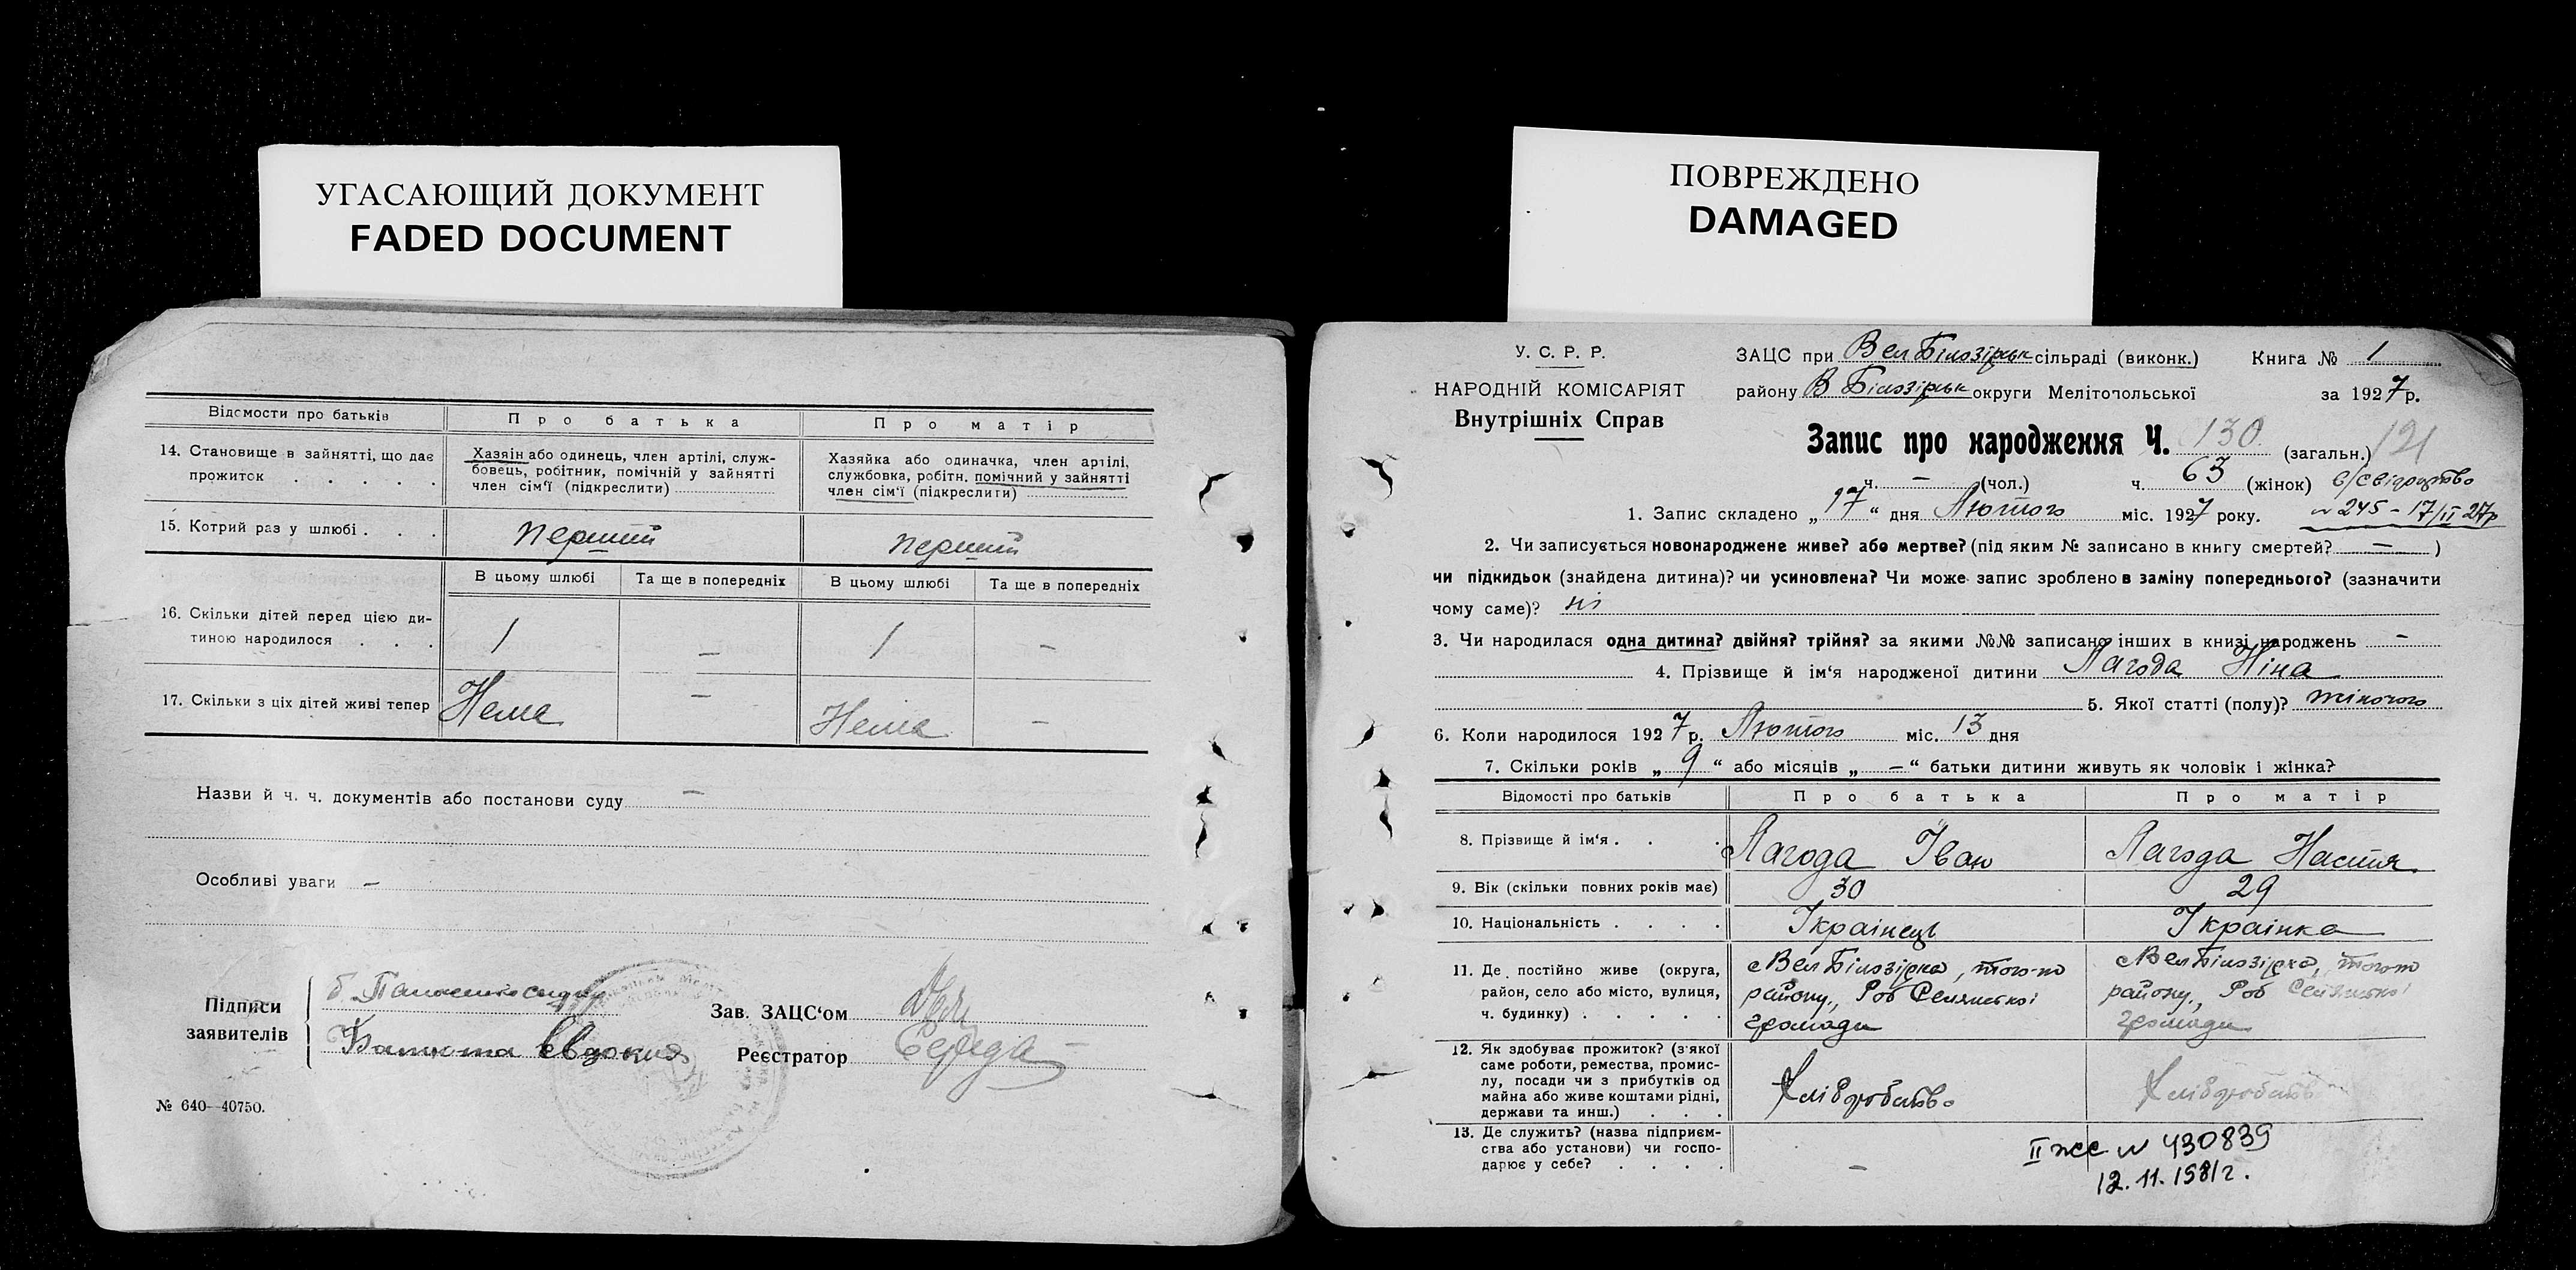 УГАСАЮЩИЙ ДОКУМЕНТ
FADED DOCUMENT
Відомости про батьків
Про батька
Про матір
14. Становище в зайнятті, що дає прожиток . . . . .
Хазяін або одинець, член артілі, служ-
бовець, робітник, помічній у зайнятті
член сім'ї (підкреслити)
Хазяйка або одиначка, член артілі,
службовка, робітн. помічний у зайнятті
член сім'ї (підкреслити)
15. Котрий раз у шлюбі . . .
перший
перший
В цьому шлюбі
Та ще в попередніх
В цьому шлюбі
Та ще в попередніх
16. Скільки дітей перед цією ди-
тиною народилося . . .
1
—
1
—
17. Скільки з ціх дітей живі тепер
Нема
—
Нема
—
Назви й ч. ч. документів або постанови суду —
Особливі уваги —
Підписи
заявителів
Євдокия
Зав. ЗАЦС'ом
Реєстратор Середа
№ 640—40750.
ПОВРЕЖДЕНО
DAMAGED
У. С. Р. Р.
НАРОДНІЙ КОМІСАРІЯТ
Внутрішніх Справ
ЗАЦС при Вел Білозірськ сільраді (виконк.) Книга № 1
району В Білозірськ округи Мелітопольської за 1927 р.
Запис про народження Ч. 130 (загальн.) 121
ч. — (чол.) ч. 63 (жінок) свідоцтво
1. Запис складено „17“ дня Лютого міс. 1927 року. № 245 - 17/II 27р
2. Чи записується новонароджене живе? або мертве? (під яким № записано в книгу смертей? — )
чи підкидьок (знайдена дитина)? чи усиновлена? Чи може запис зроблено в заміну попереднього? (зазначити
чому саме)? ні
3. Чи народилася одна дитина? двійня? трійня? за якими №№ записано інших в книзі народжень —
4. Прізвище й ім'я народженої дитини Лагода Ніна
5. Якої статті (полу)? жіночого
6. Коли народилося 1927 р. Лютого міс. 13 дня
7. Скільки років „9“ або місяців „—“ батьки дитини живуть як чоловік і жінка?
Відомості про батьків
Про батька
Про матір
8. Прізвище й ім'я . . .
Лагода Іван
Лагода Настя
9. Вік (скільки повних років має)
30
29
10. Національність . . . .
Українець
Українка
11. Де постійно живе (округа,
район, село або місто, вулиця,
ч. будинку) . . . . .
Вел Білозірка, того-ж
району, Роб Селянської
громади
Вел Білозірка, того-ж
району, Роб Селянської
громади
12. Як здобуває прожиток? (з'якої
саме роботи, ремества, промис-
лу, посади чи з прибутків од
майна або живе коштами рідні,
держави та инш.) . . .
Хліборобство
Хліборобств
13. Де служить? (назва підприєм-
ства або установи) чи госпо-
дарює у себе? . . . .
—
II жс № 430839
12.11.1981г.